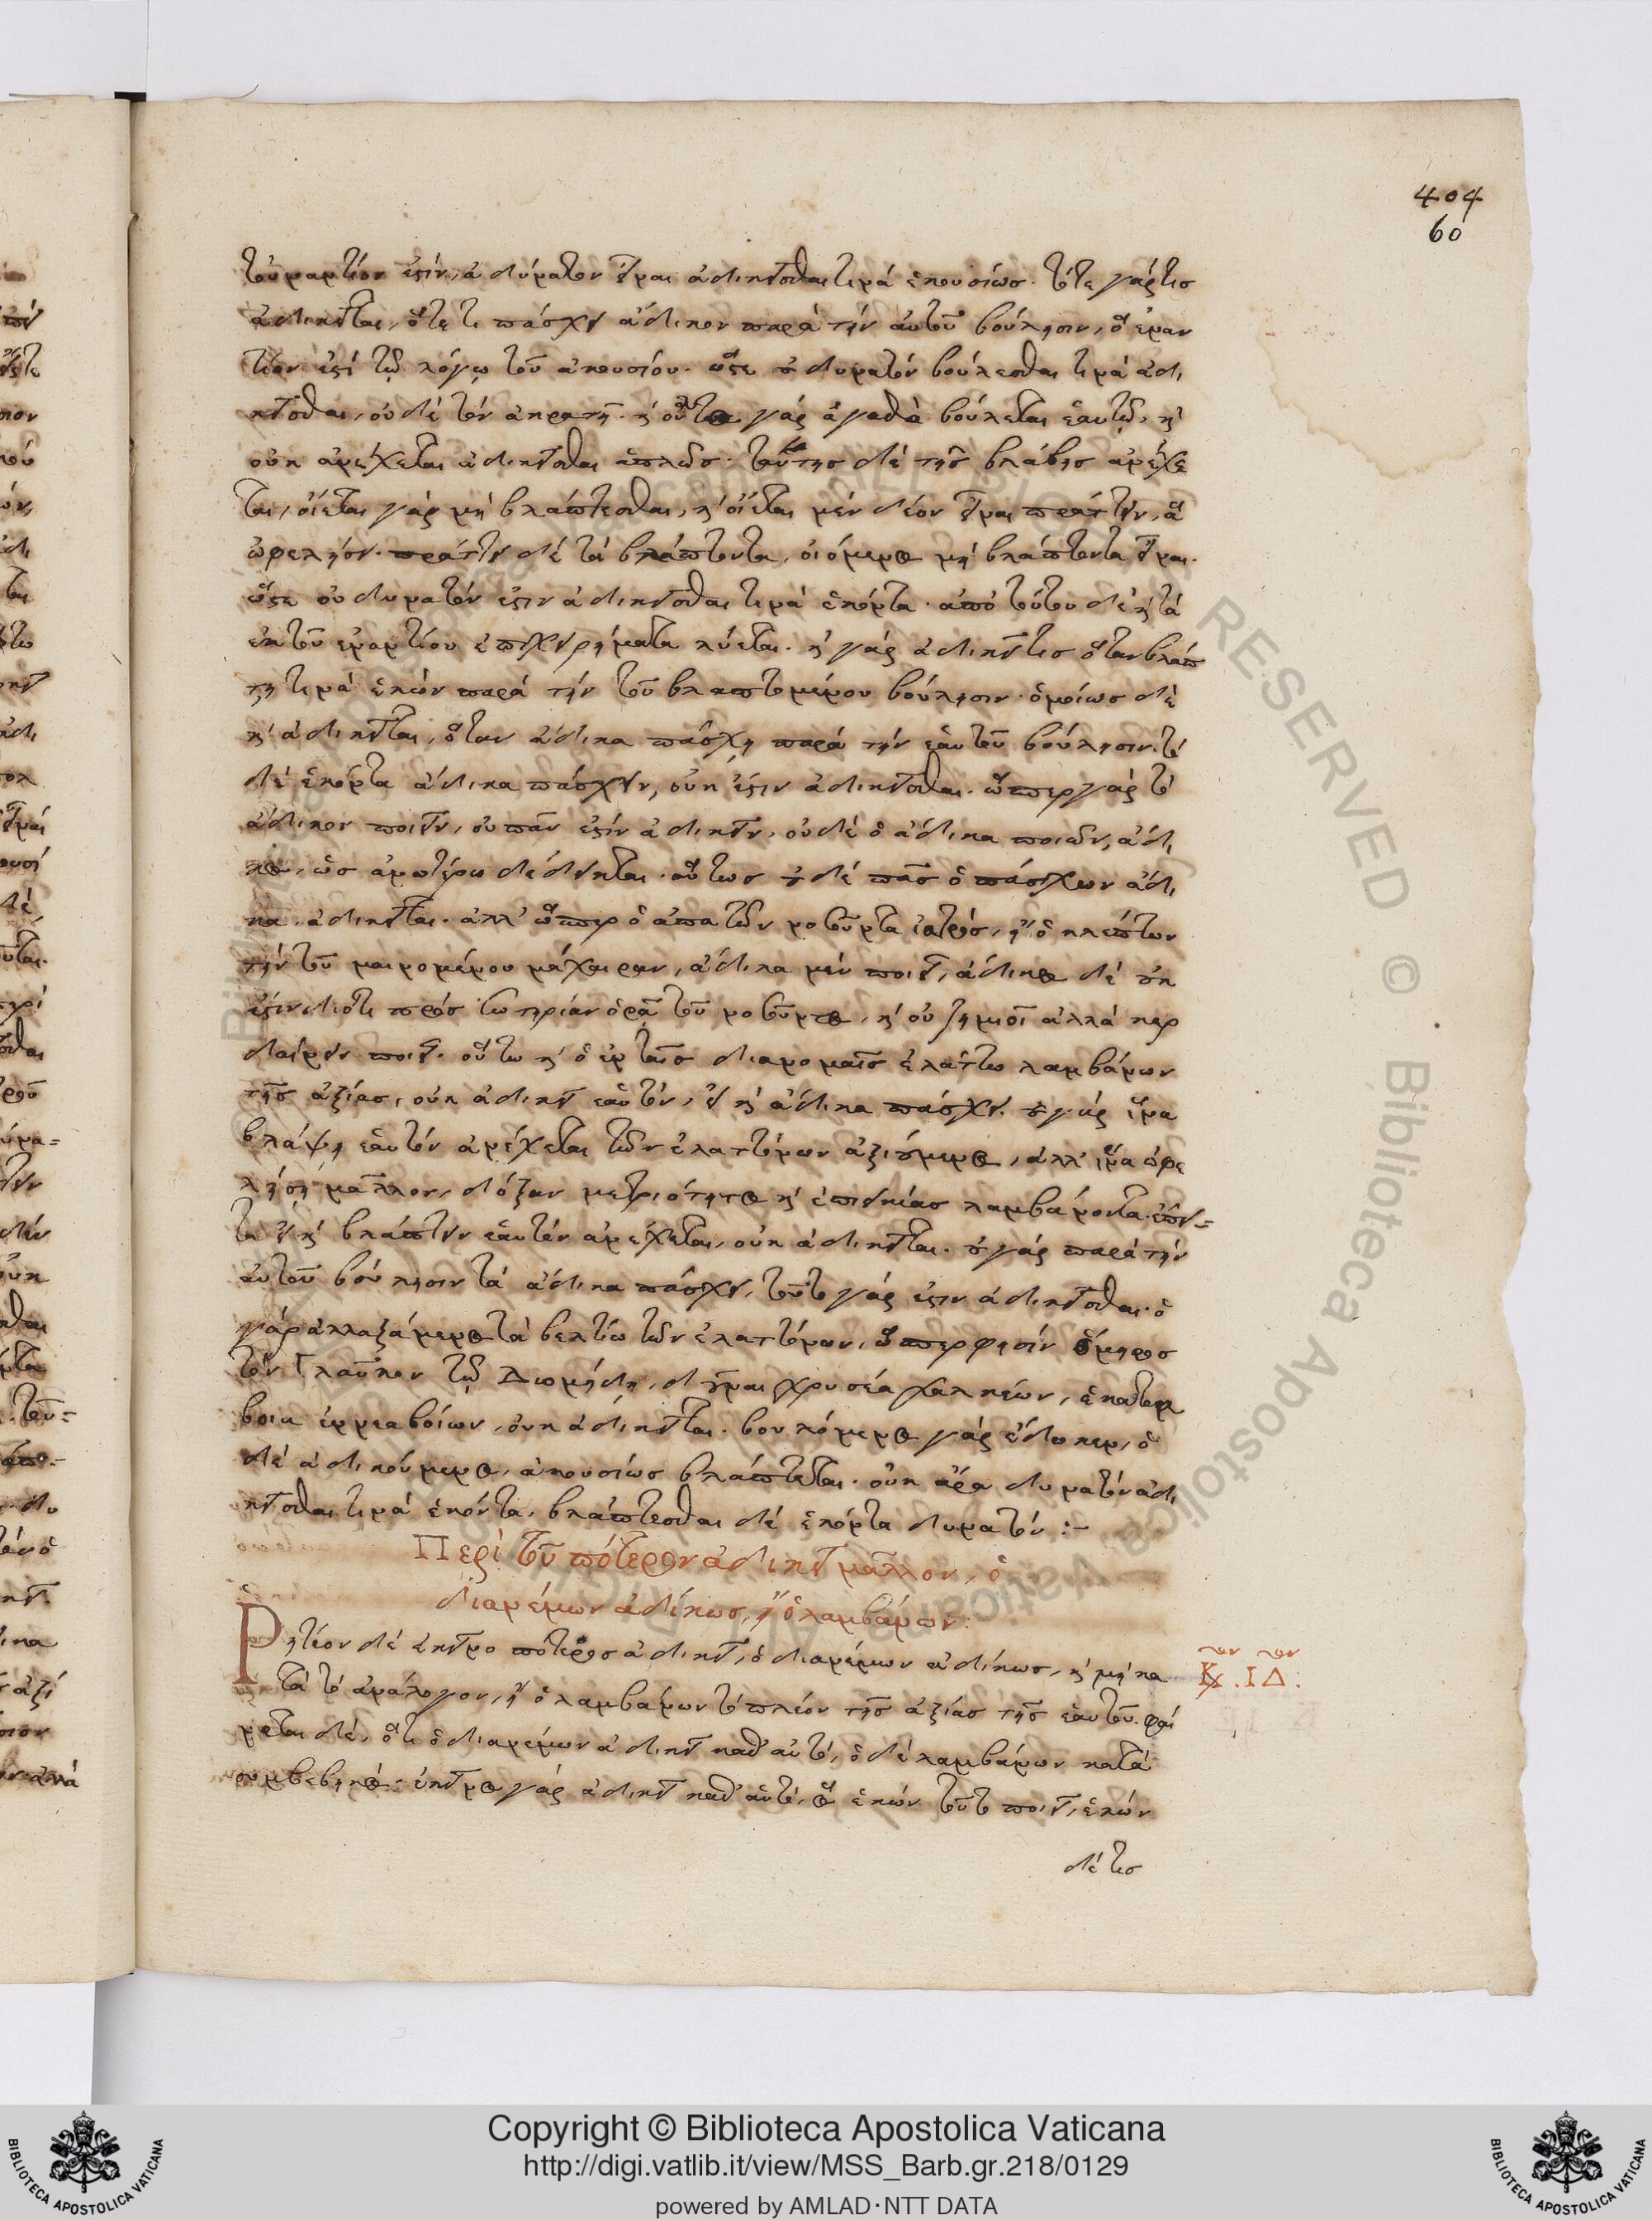 404
60
τοὐναντίον ἐστὶν, ἀδύνατον εἶναι ἀδικεῖσθαι τινὰ ἑκουσίως. τότε γάρ τις
ἀδικεῖται, ὅτε τι πάσχει ἄδικον παρὰ τὴν αὐτοῦ βούλησιν, ὃ ἐναν
τίον ἐστὶ τῷ λόγῳ τοῦ ἑκουσίου. ὥστε οὐ δυνατὸν βούλεσθαι τινὰ ἀδι
κεῖσθαι, οὐδὲ τὸν ἀκρατῆ. καὶ οὗτος γὰρ ἀγαθὰ βούλεται ἑαυτῷ, καὶ
οὐκ ἀνέχεται ἀδικεῖσθαι ἁπλῶς. ταύτης δὲ τῆς βλάβης ἀνέχε
ται, οἴεται γὰρ μὴ βλάπτεσθαι, καὶ οἴεται μὲν δέον εἶναι πράττειν, ἃ
ὠφελήσει. πράττειν δὲ τὰ βλάπτοντα, οἰόμενος μὴ βλάπτοντα εἶναι.
ὥστε οὐ δυνατόν ἐστιν ἀδικεῖσθαι τινὰ ἑκόντα. ἀπὸ τούτου δὲ καὶ τὰ
ἐκ τοῦ ἐναντίου ἐπιχειρήματα λύεται. καὶ γὰρ ἀδικεῖ τις ὅταν βλάπ
τῃ τινὰ ἑκὼν παρὰ τὴν τοῦ βλαπτομένου βούλησιν. ὁμοίως δὲ
καὶ ἀδικεῖται, ὅταν ἄδικα πάσχῃ παρὰ τὴν ἑαυτοῦ βούλησιν. τὸ
δὲ ἑκόντα ἄδικα πάσχειν, οὐκ ἔστιν ἀδικεῖσθαι. ὥσπερ γὰρ τὸ
ἄδικον ποιεῖν, οὐ πᾶν ἐστὶν ἀδικεῖν, οὐδὲ ὁ ἄδικα ποιῶν, ἄδι
κος, ὡς ἀνωτέρω δέδεικται. οὕτως οὐδὲ πᾶς ὁ πάσχων ἄδι
κα ἀδικεῖται. ἀλλ' ὥσπερ ὁ ἀπατῶν νοσοῦντα ἰατρὸς, ἢ ὁ κλέπτων
τὴν τοῦ μαινομένου μάχαιραν, ἄδικα μὲν ποιεῖ, ἄδικος δὲ οὐκ
ἔστιν διότι πρὸς σωτηρίαν ὁρᾷ τοῦ νοσοῦντος, καὶ οὐ ζημιοῖ ἀλλὰ κερ
δαίνειν ποιεῖ. οὕτω καὶ ὁ ἐν ταῖς διανομαῖς ἐλάττω λαμβάνων
τῆς ἀξίας, οὐκ ἀδικεῖ ἑαυτόν, εἰ καὶ ἄδικα πάσχει. οὐ γὰρ ἵνα
βλάψῃ ἑαυτὸν ἀνέχεται τῶν ἐλαττόνων ἀξιούμενος, ἀλλ' ἵνα ὠφε
λήσῃ μᾶλλον, δόξαν μετριότητος καὶ ἐπιεικείας λαμβάνοντα. ἔπει=
τα εἰ καὶ βλάπτειν ἑαυτὸν ἀνέχεται, οὐκ ἀδικεῖται. οὐ γὰρ παρὰ τὴν
αὐτοῦ βούλησιν τὰ ἄδικα πάσχει, τοῦτο γάρ ἐστιν ἀδικεῖσθαι. ὁ
γὰρ ἀλλαξάμενος τὰ βελτίω τῶν ἐλαττόνων, ὥσπερ φησὶν Ὅμηρος
τὸν Γλαῦκον τῷ Διομήδῃ, δοῦναι χρυσέα χαλκείων, ἑκατόμ
βοια ἐννεαβοίων, οὐκ ἀδικεῖται. βουλόμενος γὰρ ἔδωκεν, ὁ
δὲ ἀδικούμενος, ἀκουσίως βλάπτεται. οὐκ ἄρα δυνατὸν ἀδι
κεῖσθαι τινὰ ἑκόντα, βλάπτεσθαι δὲ ἑκόντα δυνατόν :-
Περὶ τοῦ πότερον ἀδικεῖ μᾶλλον, ὁ
διανέμων ἀδίκως, ἢ ὁ λαμβάνων:
Ρητέον δὲ ἐκεῖνο πότερος ἀδικεῖ, ὁ διανέμων ἀδίκως, καὶ μὴ κα
τὰ τὸ ἀνάλογον, ἢ ὁ λαμβάνων τὸ πλέον τῆς ἀξίας τῆς ἑαυτοῦ. φαί
νεται δὲ, ὅτι ὁ διανέμων ἀδικεῖ καθ' αὑτό, ὁ δὲ λαμβάνων κατὰ
συμβεβηκός. ἐκεῖνος γὰρ ἀδικεῖ καθ' αὑτό, ὃς ἑκὼν τοῦτο ποιεῖ, ἑκὼν
δέ τις
Κ. ΙΔ:
Copyright © Biblioteca Apostolica Vaticana
http://digi.vatlib.it/view/MSS_Barb.gr.218/0129
powered by AMLAD·NTT DATA
BIBLIOTECA APOSTOLICA VATICANA
BIBLIOTECA APOSTOLICA VATICANA